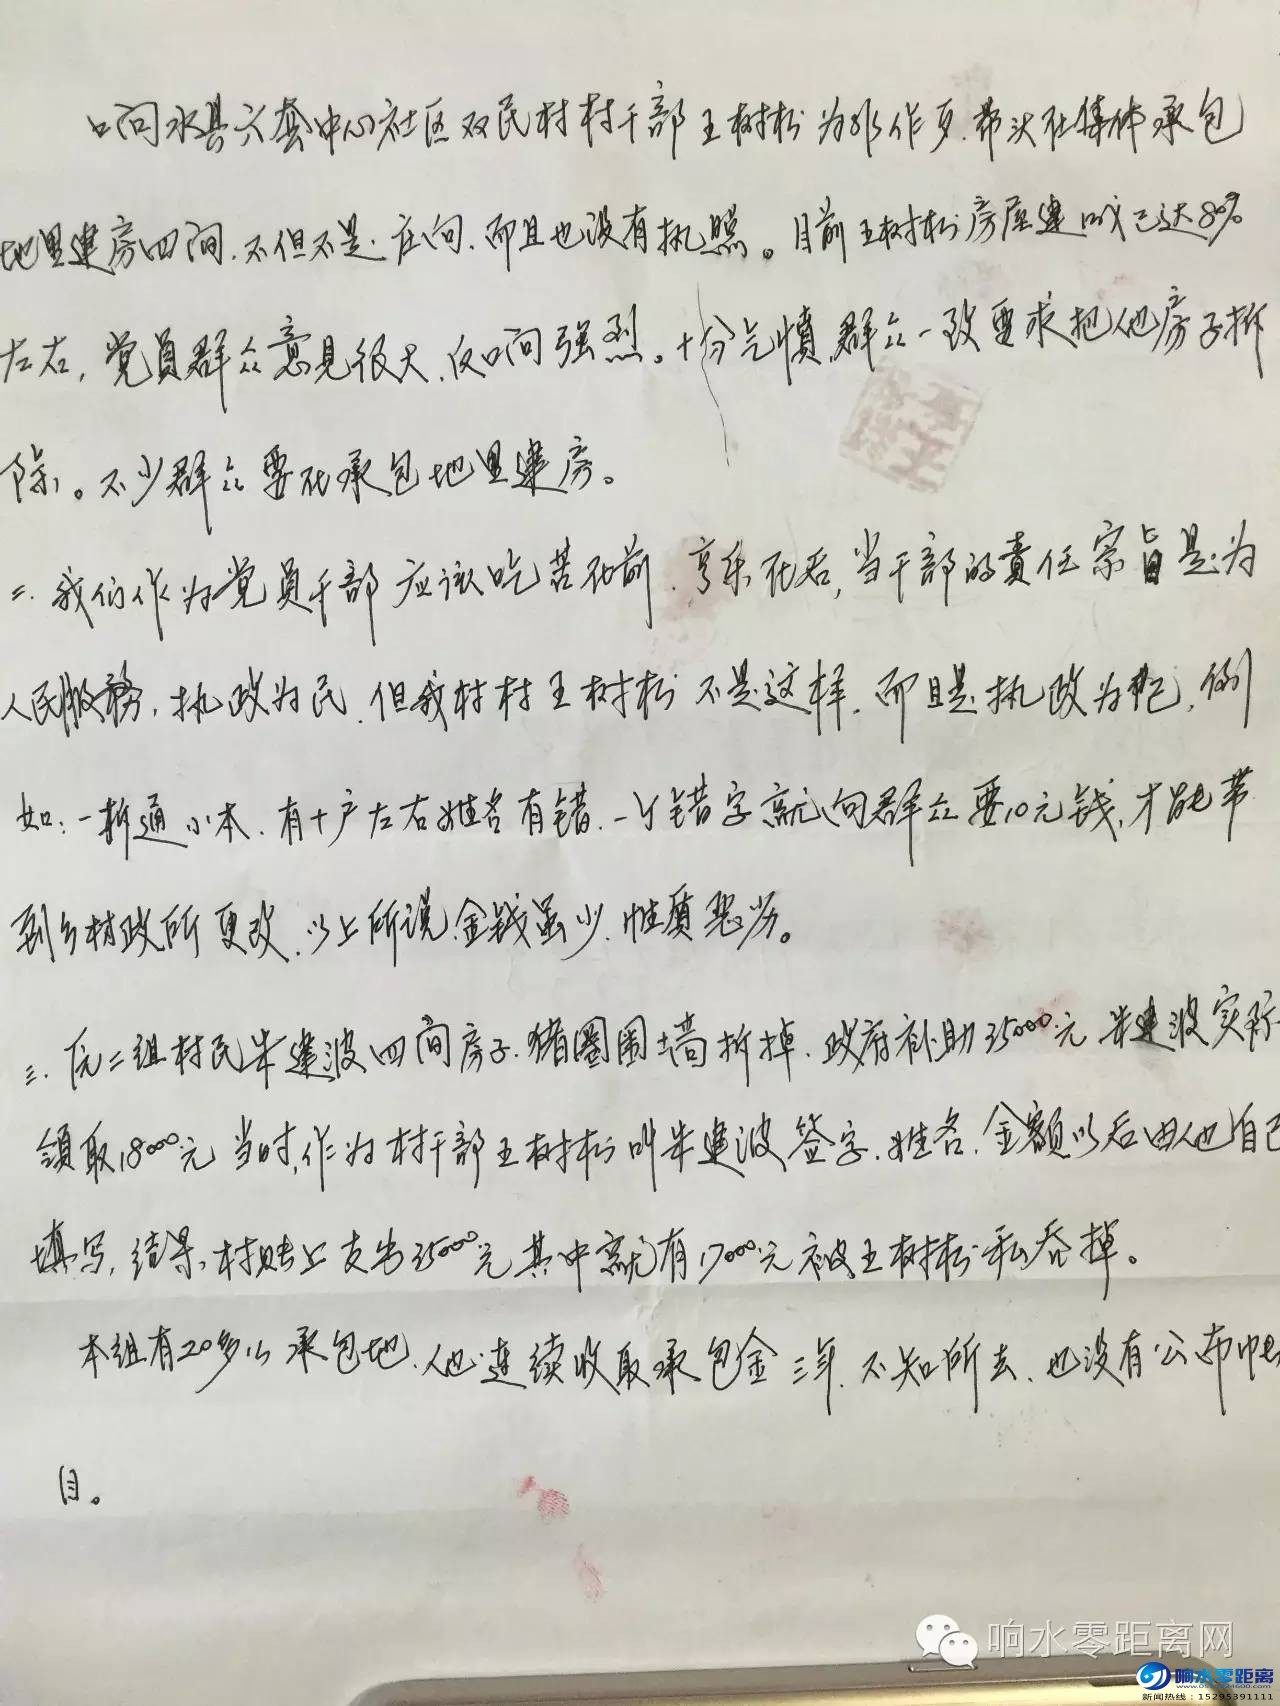 响水县六套中心社区双民村村干部王树松为非作歹.带头在集体承包
地里建房四间.不但不是庄向.而且也没有执照。目前王树松房屋建成已达80%
左右,党员群众意见很大.反响强烈。十分气愤.群众一致要求把他房子拆
除。不少群众要在承包地里建房。
二.我们作为党员干部应该吃苦在前.享乐在后,当干部的责任宗旨是为
人民服务,执政为民.但我村村王树松不是这样.而且是执政为己,例
如:一折通小本.有十户左右姓名有错.一个错字就向群众要10元钱,才能带
到乡财政所更改.以上所说.金钱虽少.性质恶劣。
三. 二组村民朱建波四间房子.猪圈围墙拆掉.政府补助35000元 朱建波实际
领取18000元当时,作为村干部王树松叫朱建波签字.姓名.金额以后由他自己
填写,结果村账上支出35000元其中就有17000元被王树松私吞掉。
本组有20多亩承包地.他连续收取承包金三年.不知所去.也没有公布帐
目。
响水零距离网
响水零距离
新闻热线:15295391111